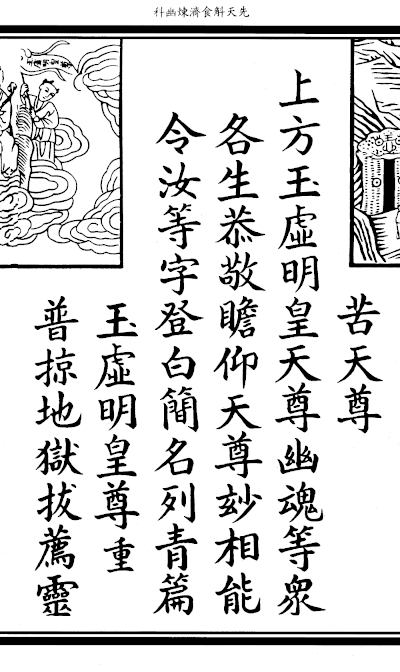 先天斛食濟煉幽科
苦天尊
上方玉虛明皇天尊幽魂等眾
各生恭敬瞻仰天尊玅相能
令汝等字登白簡名列青篇
玉虛明皇尊重
普掠地獄拔薦靈